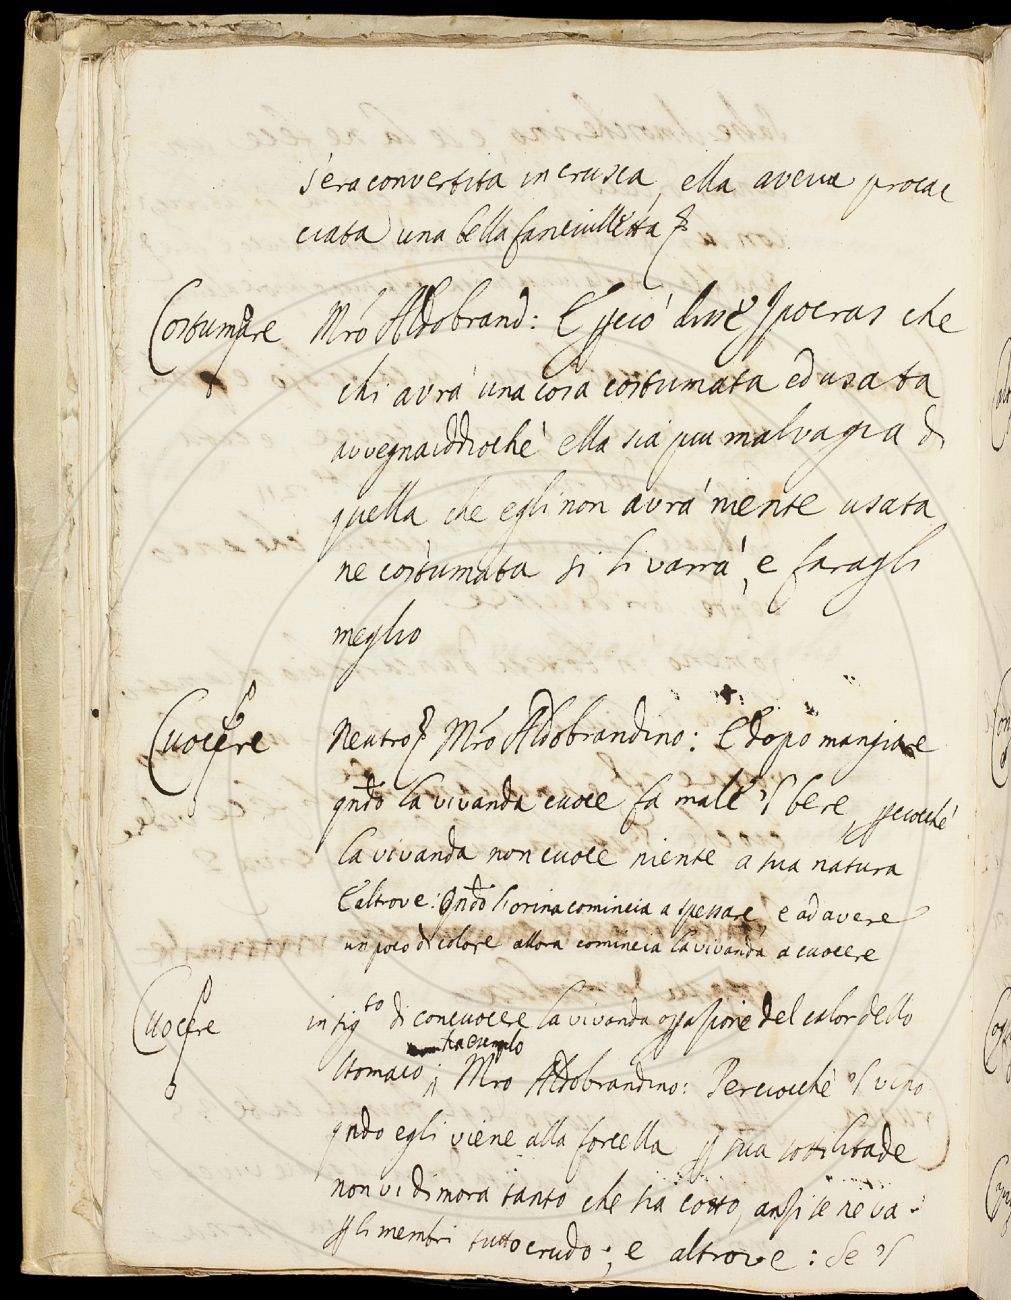 s'era convertita in crusca, ella aveva procac
ciata una bella fanciulletta
Costumare Mro Aldobrand: E pciò disse Ipocras che
chi avrà una cosa costumata ed usata
avvegnaiddiochè ella sia piu malvagia di
quella che egli non avrà niente usata
ne costumata si li varrà, e faragli
meglio
Cuocere Neutro Mro Aldobrandino: E dopo mangiare
qndo la vivanda cuoce fa male 'l bere, pciocchè
la vivanda non cuoce niente a sua natura
E altrove: Qndo l'orina comincia a spessare e ad avere
un poco di colore allora comincia la vivanda a cuocere
Cuocere in sigto di concuocere la vivanda opazione del calor dello
ha esemplo
stomaco; Mro Aldobrandino: Perciocchè 'l vino
qndo egli viene alla forcella p sua sottilitade
non vi dimora tanto che sia cotto, anzi se ne va
p li membri tutto crudo; e altrove: Se 'l